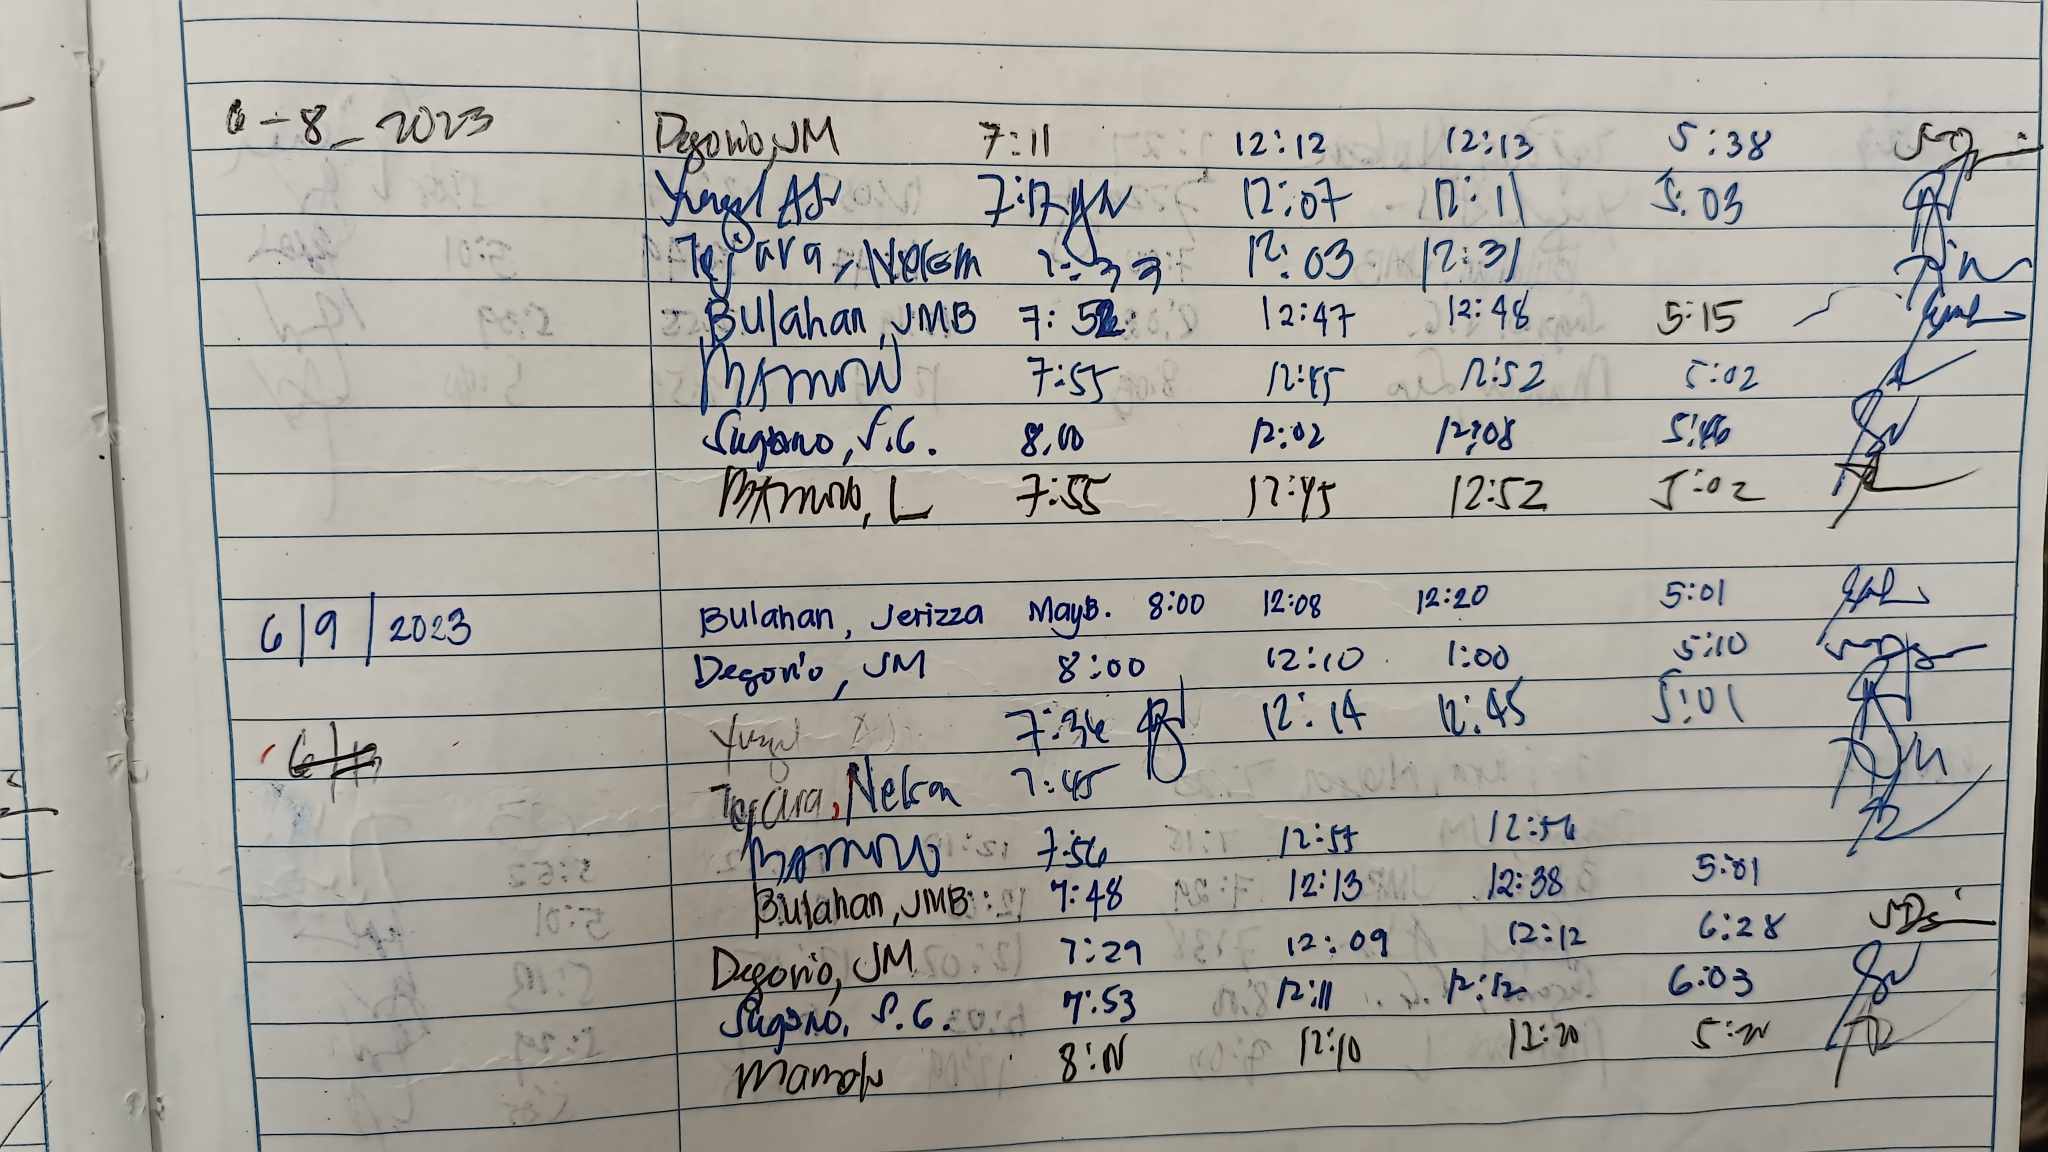 6-8-2023 Degorio, JM 7:11 12:12 12:13 5:38
7:17 12:07 12:11 5:03
Tejara, Nelson 7:33 12:03 12:31
Bulahan, JMB 7:52 12:47 12:48 5:15
7:55 12:45 12:52 5:02
Sugano, S.G. 8:00 12:02 12:08 5:46
7:55 12:45 12:52 5:02
6/9/2023 Bulahan, Jerizza MayB. 8:00 12:08 12:20 5:01
Degorio, JM 8:00 12:10 1:00 5:10
7:36 12:14 12:45 5:01
Tejara, Nelson 7:45
7:56 12:55 12:56
Bulahan, JMB 7:48 12:13 12:38 5:01
Degorio, JM 7:29 12:09 12:12 6:28
Sugano, S.G. 7:53 12:11 12:12 6:03
12:10 12:20